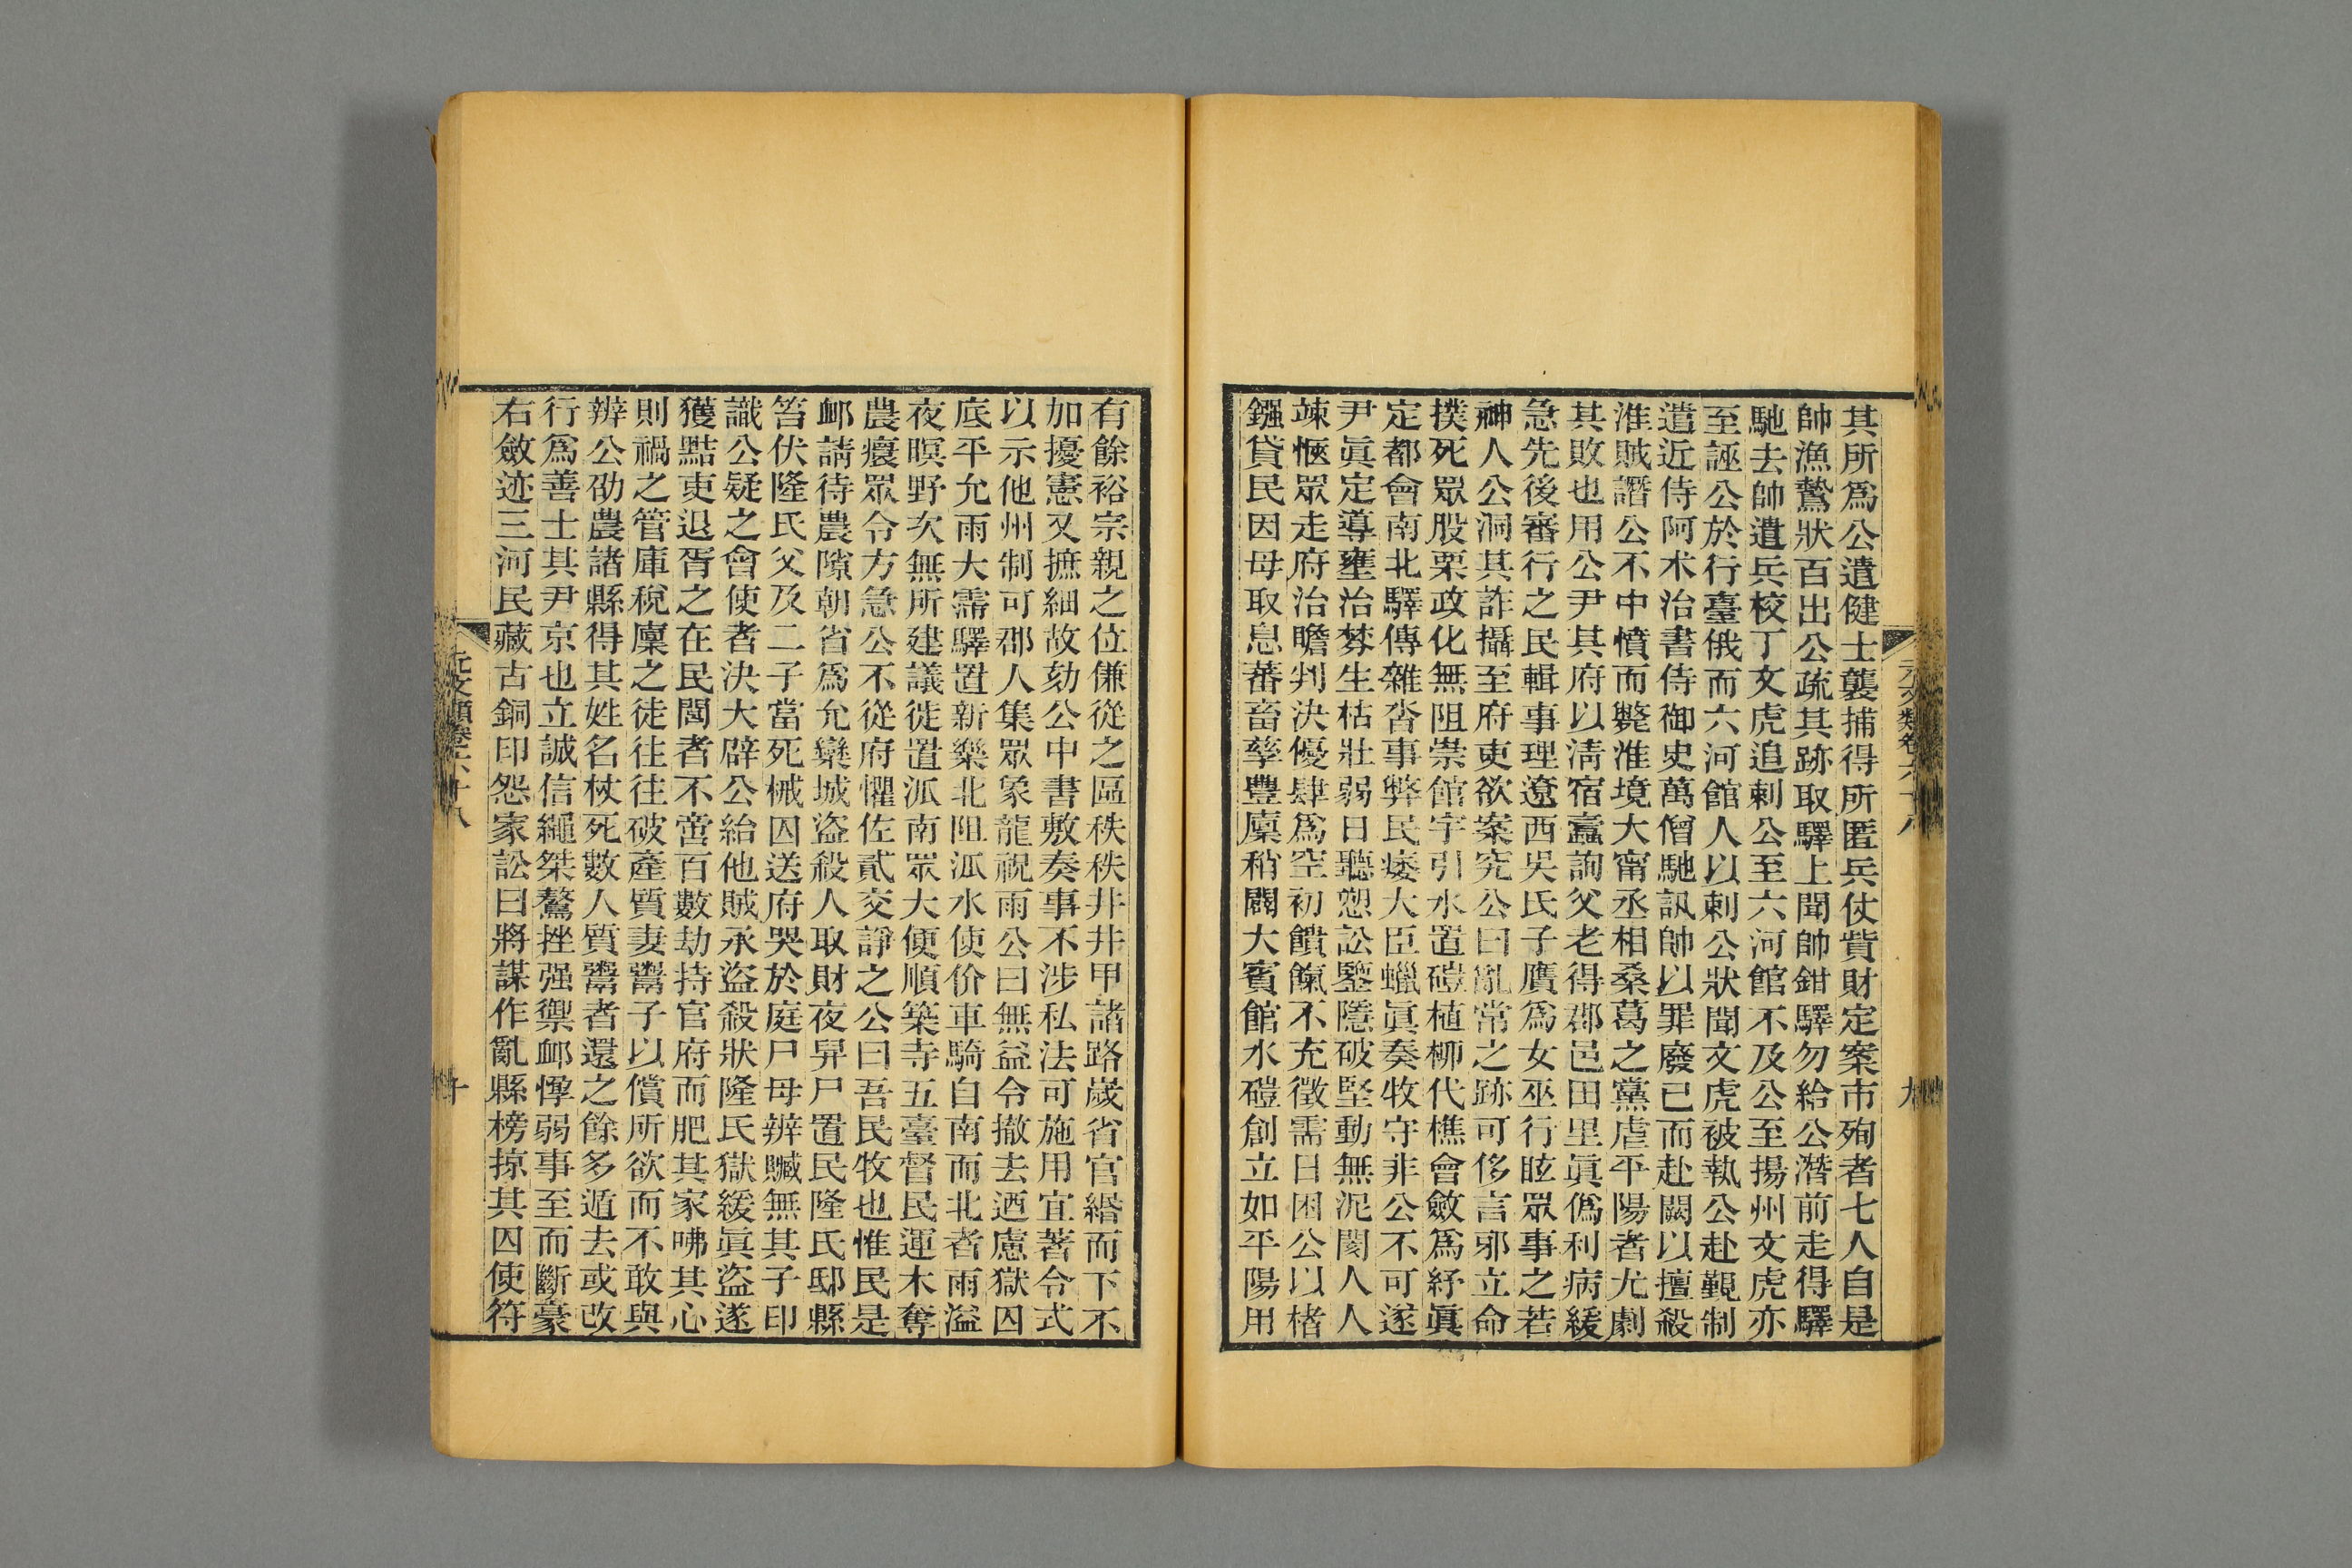 其所爲公遣健士襲捕得所匿兵仗貲財定案市殉者七人自是
帥漁鷙狀百出公疏其跡取驛上聞帥鉗驛勿給公潛前走得驛
馳去帥遣兵校丁文虎追刺公至六河館不及公至揚州文虎亦
至誣公於行臺俄而六河館人以刺公狀聞文虎被執公赴覲制
遣近侍阿朮治書侍御史萬僧馳訊帥以罪廢已而赴闕以擅殺
淮賊譖公不中憤而斃淮境大甯丞相桑葛之黨虐平陽者尤劇
其敗也用公尹其府以淸宿蠹詢父老得郡邑田里眞僞利病緩
急先後審行之民輯事理遼西吳氏子贋爲女巫行眩眾事之若
神人公洞其詐攝至府吏欲案究公曰亂常之跡可侈言邪立命
撲死眾股栗政化無阻崇館宇引水置磑植柳代樵會斂爲紓眞
定都會南北驛傳雜沓事弊民痿大臣蠟眞奏牧守非公不可遂
尹眞定導壅治棼生枯壯弱日聽愬訟鑒隱破堅動無泥閡人人
竦愜眾走府治瞻判決優肆爲空初饋餼不充徵需日困公以楮
鏹貸民因母取息蕃畜孳豐廩稍闢大賓館水磑創立如平陽用
元文類卷六十八
九
有餘裕宗親之位傔從之區秩秩井井甲諸路歲省官緡而下不
加擾憲又摭細故劾公中書敷奏事不涉私法可施用宜著令式
以示他州制可郡人集眾象龍祝雨公曰無益令撤去迺慮獄囚
底平允雨大霈驛置新樂北阻泒水使价車騎自南而北者雨溢
夜暝野次無所建議徙置泒南眾大便順築寺五臺督民運木奪
農瘝眾令方急公不從府懼佐貳交諍之公曰吾民牧也惟民是
卹請待農隙朝省爲允欒城盜殺人取財夜舁尸置民隆氏邸縣
笞伏隆氏父及二子當死械囚送府哭於庭尸母辨贜無其子印
識公疑之會使者決大辟公紿他賊承盜殺狀隆氏獄緩眞盜遂
獲點吏退胥之在民閭者不啻百數劫持官府而肥其家咈其心
則禍之管庫稅廩之徒往往破產質妻鬻子以償所欲而不敢與
辨公劭農諸縣得其姓名杖死數人質鬻者還之餘多遁去或改
行爲善士其尹京也立誠信繩桀驁挫强禦卹惸弱事至而斷豪
右斂迹三河民藏古銅印怨家訟曰將謀作亂縣榜掠其囚使符
元文類卷六十八
十